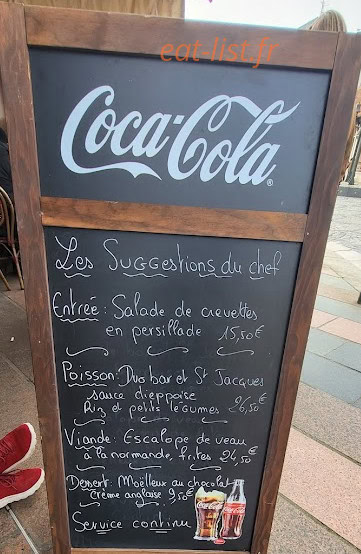 eat-list.fr
Coca-Cola
Les Suggestions du chef
Entrée: Salade de crevettes
en persillade 15,50€
Poisson: Duo bar et St Jacques
sauce dieppoise
Riz et petits légumes 26,50€
Viande: Escalope de veau
à la normande, frites 24,50€
Dessert: Moëlleux au chocolat
crème anglaise 9,50€
Service continu
Coca-Cola
Coca-Cola